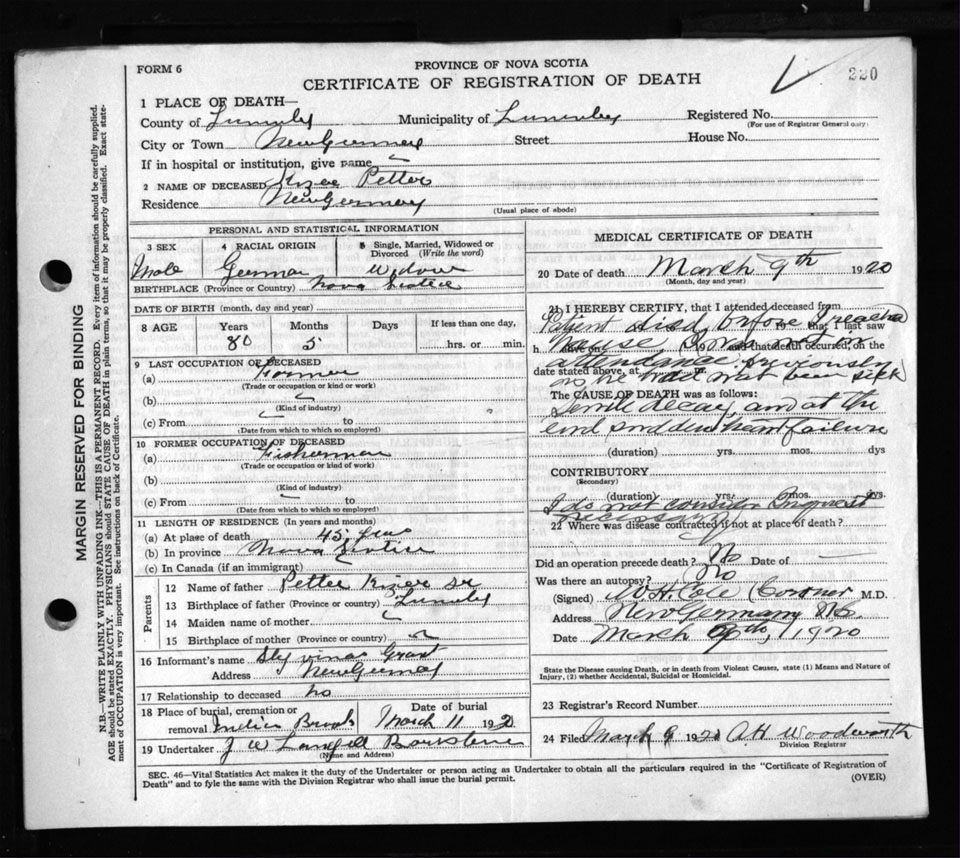 FORM 6
PROVINCE OF NOVA SCOTIA
CERTIFICATE OF REGISTRATION OF DEATH
220
1 PLACE OF DEATH—
County of Lunenby Municipality of Lunenby Registered No.
(For use of Registrar General only)
City or Town New Germany Street House No.
If in hospital or institution, give name
2 NAME OF DECEASED Kizer Petter
Residence New Germany
(Usual place of abode)
PERSONAL AND STATISTICAL INFORMATION
3 SEX 4 RACIAL ORIGIN 5 Single, Married, Widowed or Divorced (Write the word)
Male German Widower
BIRTHPLACE (Province or Country) Nova Scotia
DATE OF BIRTH (month, day and year)
8 AGE Years Months Days If less than one day,
80 5 hrs. or min.
9 LAST OCCUPATION OF DECEASED
(a) Farmer
(Trade or occupation or kind or work)
(b)
(Kind of industry)
(c) From to
(Date from which to which so employed)
10 FORMER OCCUPATION OF DECEASED
(a) Fisherman
(Trade or occupation or kind of work)
(b)
(Kind of industry)
(c) From to
(Date from which to which so employed)
11 LENGTH OF RESIDENCE (In years and months)
(a) At place of death 45
(b) In province Nova Scotia
(c) In Canada (if an immigrant)
Parents
12 Name of father Petter Kizer sr
13 Birthplace of father (Province or country) Lunenby
14 Maiden name of mother
15 Birthplace of mother (Province or country)
16 Informant's name Grant
Address New Germany
17 Relationship to deceased no
18 Place of burial, cremation or Date of burial
removal Indian Brook March 11 1920
19 Undertaker J W Langell
(Name and Address)
MEDICAL CERTIFICATE OF DEATH
20 Date of death March 9th 1920
(Month, day and year)
21 I HEREBY CERTIFY, that I attended deceased from
Patient died before I reached
that I last saw
house,
h alive on 19 and that death occurred, on the
attendance previously
date stated above, at m.
as he had not been sick
The CAUSE OF DEATH was as follows:
Senile decay, and at the
end sudden heart failure
(duration) yrs. mos. dys
CONTRIBUTORY
(Secondary)
(duration) yrs. mos. dys.
I do not consider Inquest
necessary
22 Where was disease contracted if not at place of death?
Did an operation precede death? No Date of
Was there an autopsy? No
(Signed) W.H. Cole Coroner M.D.
Address New Germany N.S.
Date March 9th, 1920
State the Disease causing Death, or in death from Violent Causes, state (1) Means and Nature of
Injury, (2) whether Accidental, Suicidal or Homicidal.
23 Registrar's Record Number
24 Filed March 9 1920 A H Woodworth
Division Registrar
SEC. 46—Vital Statistics Act makes it the duty of the Undertaker or person acting as Undertaker to obtain all the particulars required in the "Certificate of Registration of
Death" and to fyle the same with the Division Registrar who shall issue the burial permit. (OVER)
MARGIN RESERVED FOR BINDING
N.B.—WRITE PLAINLY WITH UNFADING INK—THIS IS A PERMANENT RECORD. Every item of information should be carefully supplied.
AGE should be stated EXACTLY. PHYSICIANS should STATE CAUSE OF DEATH in plain terms, so that it may be properly classified. Exact state-
ment of OCCUPATION is very important. See instructions on back of Certificate.